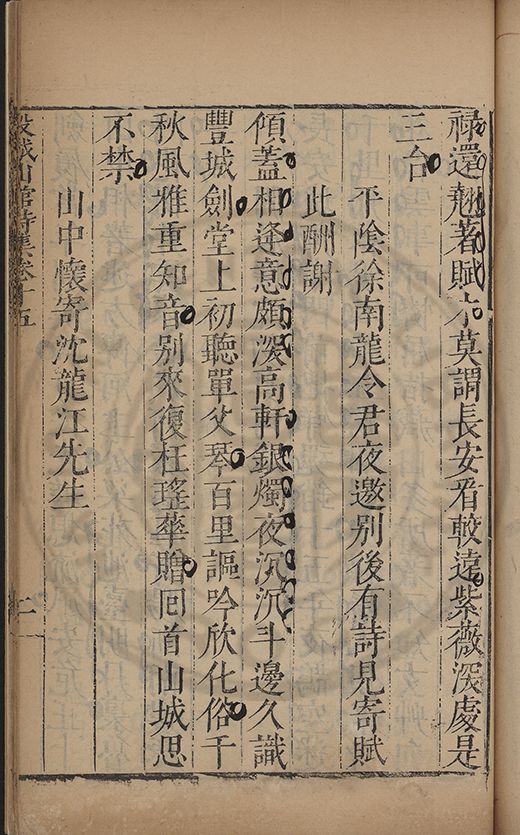 祿還翹著賦才莫謂長安看較遠紫薇深處是
三台
平陰徐南龍令君夜邀別後有詩見寄賦
此酬謝
傾蓋相逢意頗深高軒銀燭夜沉沉斗邊久識
豐城劍堂上初聽單父琴百里謳吟欣化俗千
秋風雅重知音別來復枉瑤華贈囘首山城思
不禁
山中懷寄沈龍江先生
穀城山館詩集卷十五
二